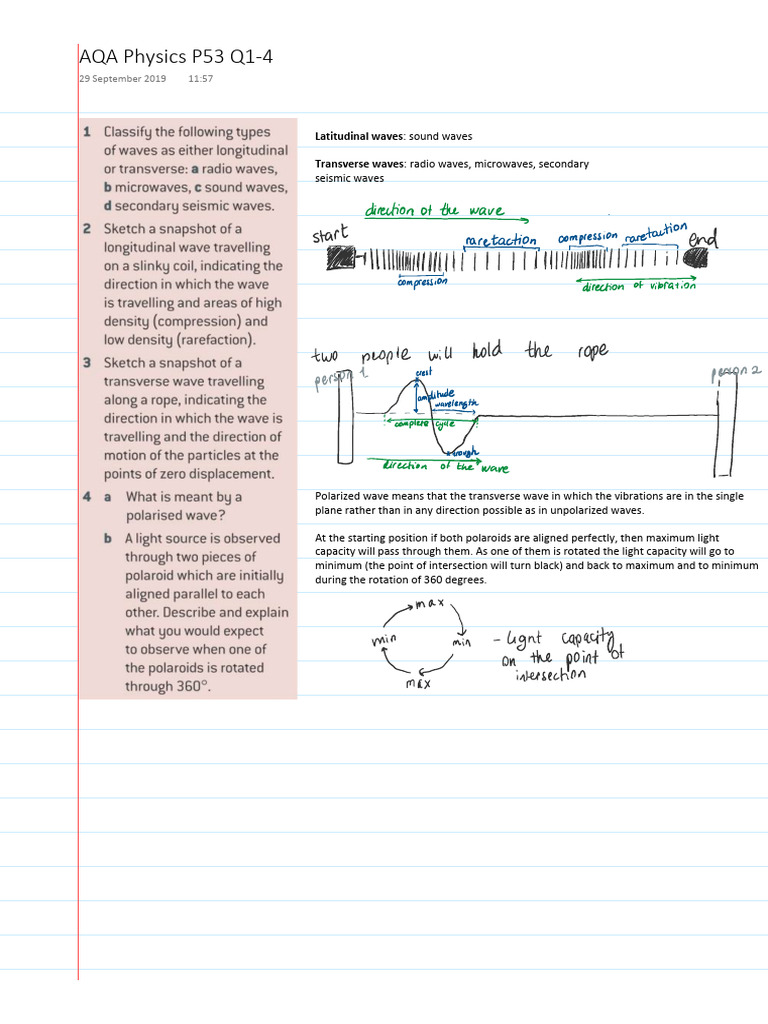 AQA Physics P53 Q1-4
29 September 2019 11:57
1 Classify the following types
of waves as either longitudinal
or transverse: a radio waves,
b microwaves, c sound waves,
d secondary seismic waves.
2 Sketch a snapshot of a
longitudinal wave travelling
on a slinky coil, indicating the
direction in which the wave
is travelling and areas of high
density (compression) and
low density (rarefaction).
3 Sketch a snapshot of a
transverse wave travelling
along a rope, indicating the
direction in which the wave is
travelling and the direction of
motion of the particles at the
points of zero displacement.
4 a What is meant by a
polarised wave?
b A light source is observed
through two pieces of
polaroid which are initially
aligned parallel to each
other. Describe and explain
what you would expect
to observe when one of
the polaroids is rotated
through 360°.
Latitudinal waves: sound waves
Transverse waves: radio waves, microwaves, secondary
seismic waves
direction of the wave
start
rarefaction
compression
rarefaction
end
compression
direction of vibration
two people will hold the rope
person 1
person 2
crest
amplitude
wavelength
complete cycle
trough
direction of the wave
Polarized wave means that the transverse wave in which the vibrations are in the single
plane rather than in any direction possible as in unpolarized waves.
At the starting position if both polaroids are aligned perfectly, then maximum light
capacity will pass through them. As one of them is rotated the light capacity will go to
minimum (the point of intersection will turn black) and back to maximum and to minimum
during the rotation of 360 degrees.
max
min
min
max
- light capacity
on the point of
intersection